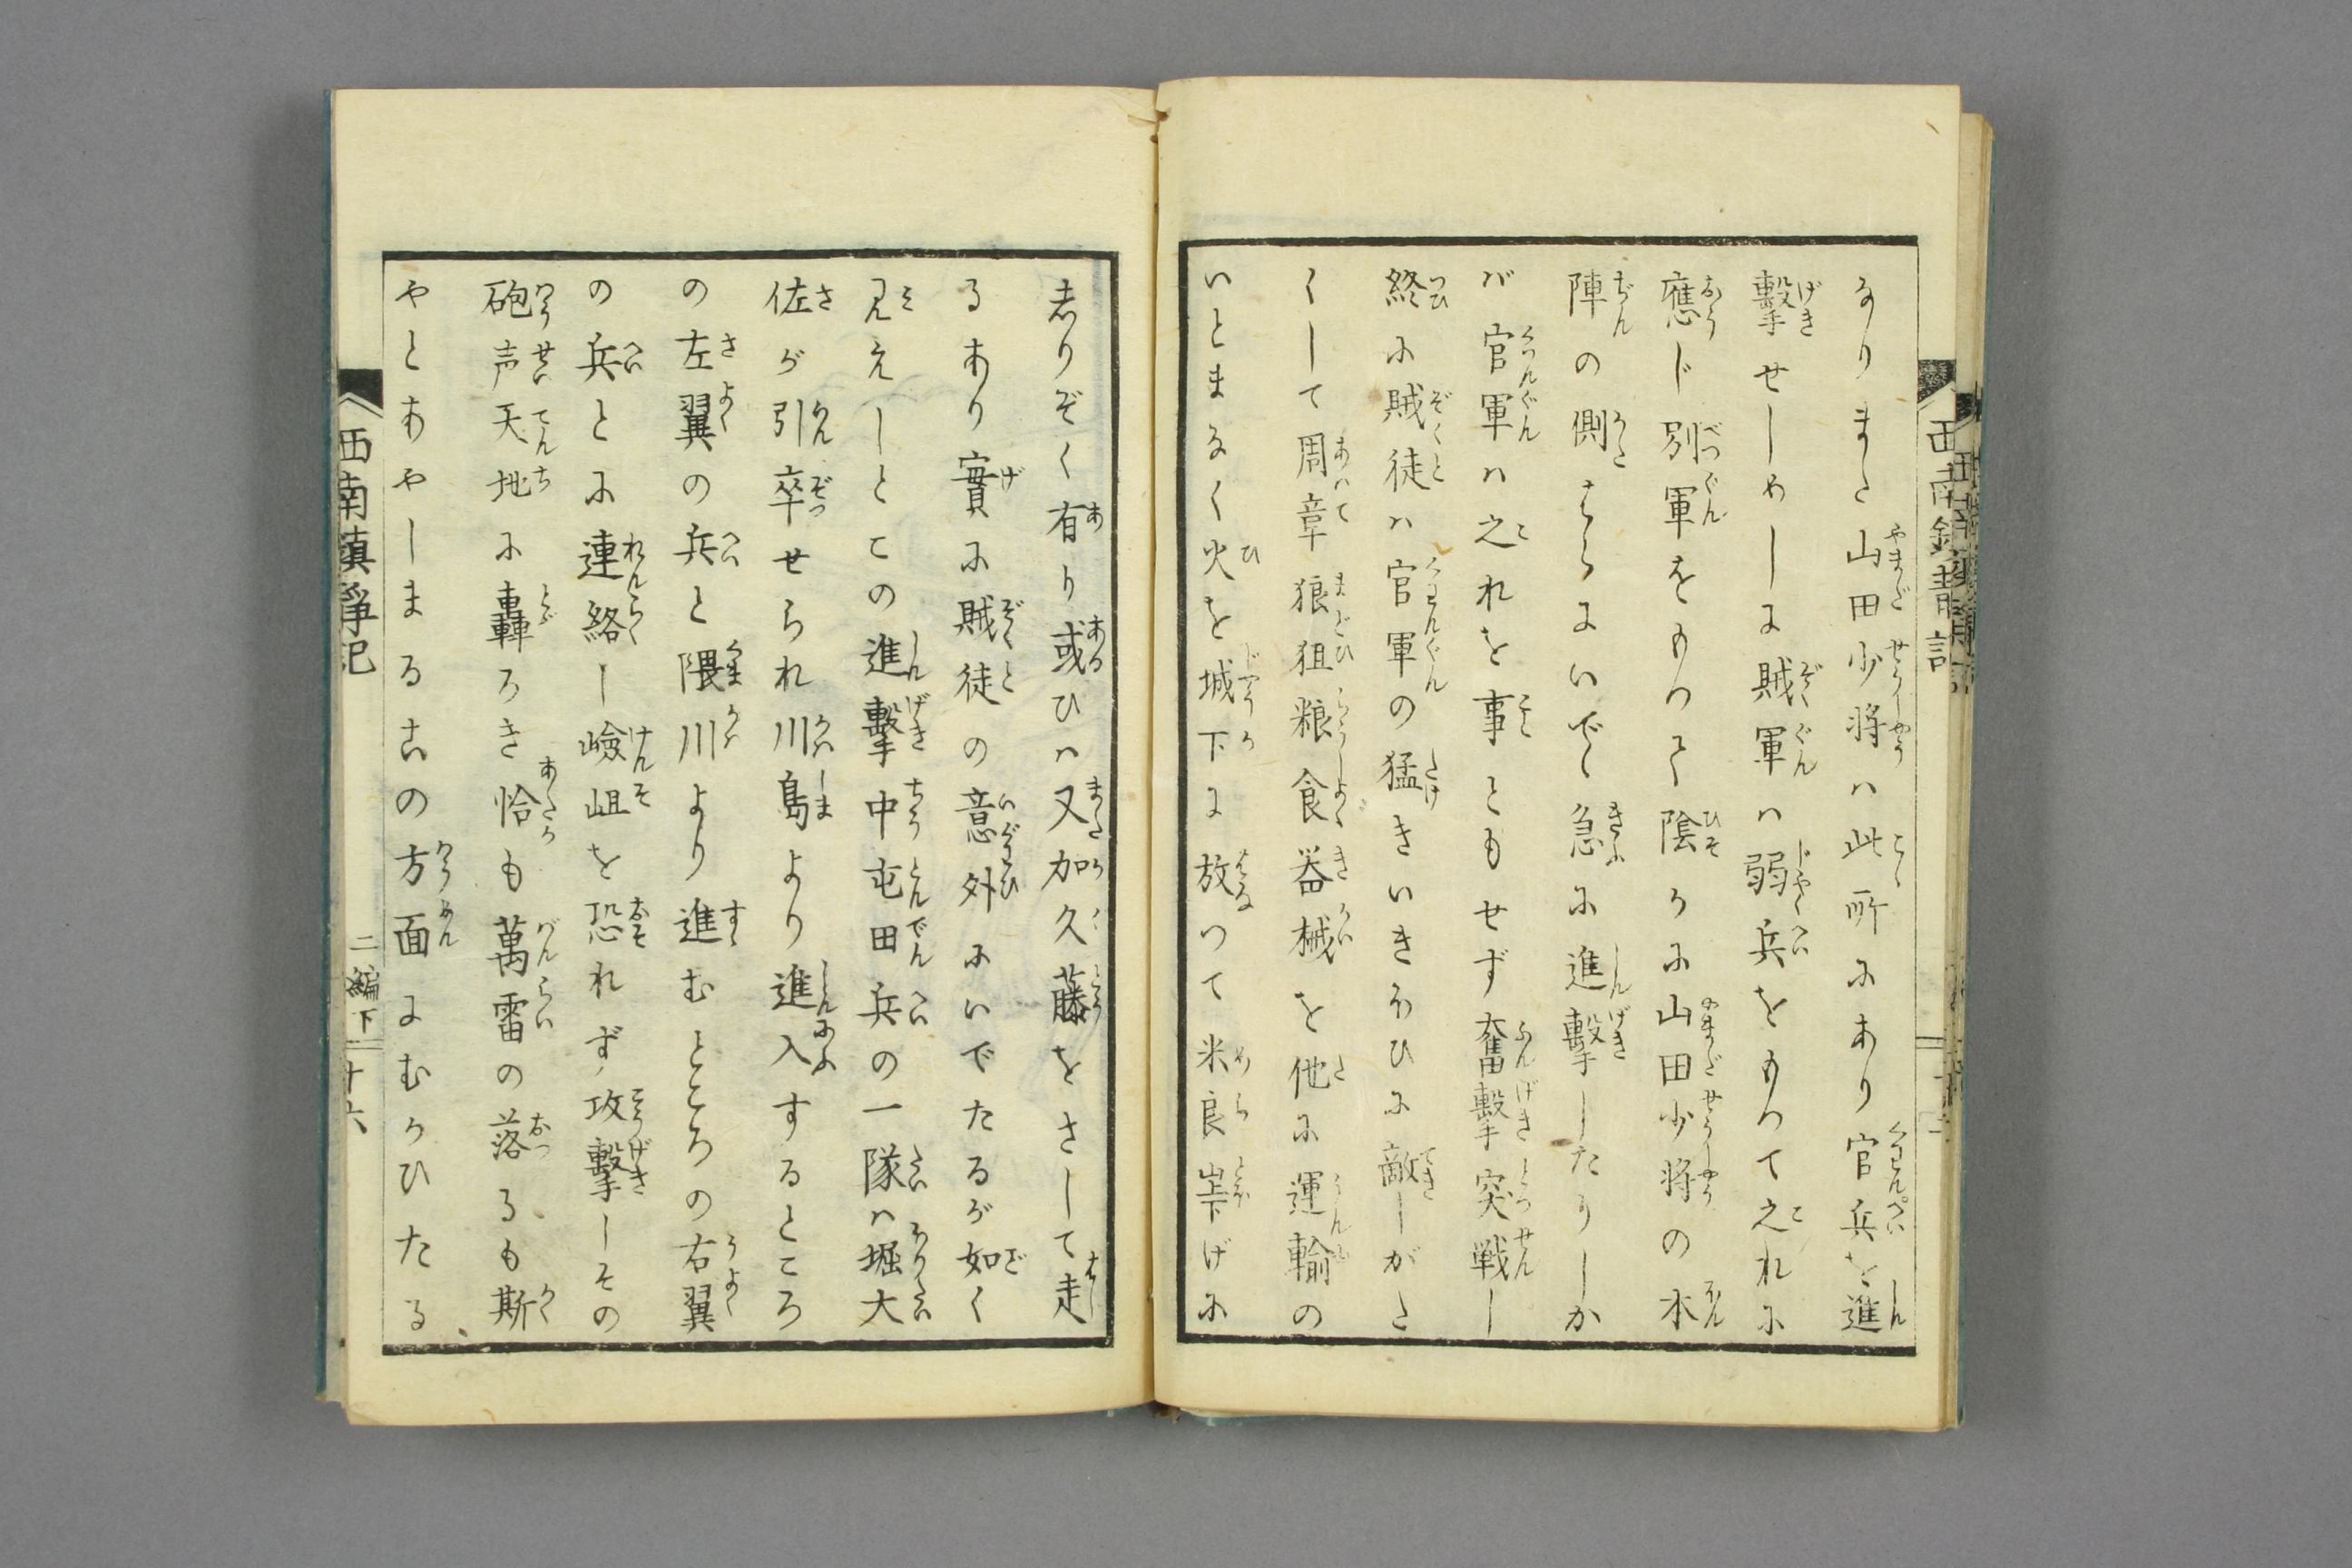 なりまた山田少将ハ此所にあり官兵を進
撃せしめしに賊軍ハ弱兵をもつて之れに
應じ別軍をもつて陰かに山田少将の本
陣の側はらにいで急に進撃したりしか
バ官軍ハ之れを事ともせず奮撃突戦し
終に賊徒ハ官軍の猛きいきほひに敵しがた
くして周章狼狽粮食器械を他に運輸の
いとまなく火を城下に放つて米良峠げに
志りぞく有り或ひハ又加久藤をさして走
るあり實に賊徒の意外にいでたるが如く
見えしとこの進撃中屯田兵の一隊ハ堀大
佐が引卒せられ川島より進入するところ
の左翼の兵と隈川より進むところの右翼
の兵とに連絡し嶮岨を恐れず攻撃しその
砲声天地に轟ろき恰も萬雷の落るも斯
やとあやしまるこの方面にむかひたる
西南鎮静記
二編下
十六